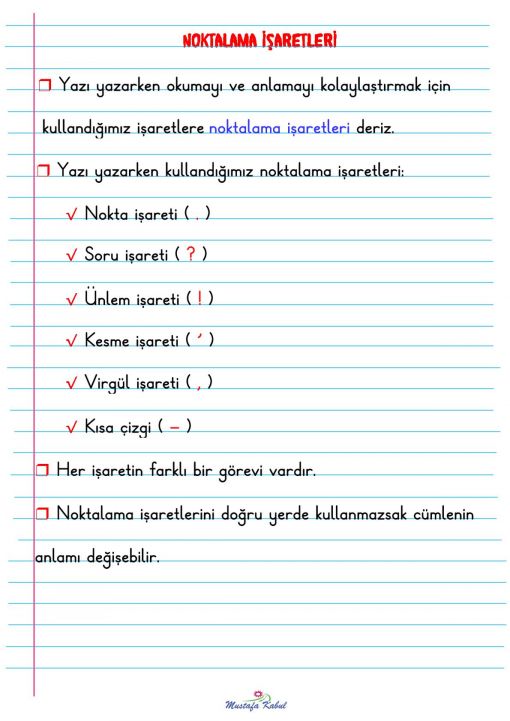 NOKTALAMA İŞARETLERİ
❐ Yazı yazarken okumayı ve anlamayı kolaylaştırmak için
kullandığımız işaretlere noktalama işaretleri deriz.
❐ Yazı yazarken kullandığımız noktalama işaretleri:
√ Nokta işareti ( . )
√ Soru işareti ( ? )
√ Ünlem işareti ( ! )
√ Kesme işareti ( ’ )
√ Virgül işareti ( , )
√ Kısa çizgi ( – )
❐ Her işaretin farklı bir görevi vardır.
❐ Noktalama işaretlerini doğru yerde kullanmazsak cümlenin
anlamı değişebilir.
Mustafa Kabul